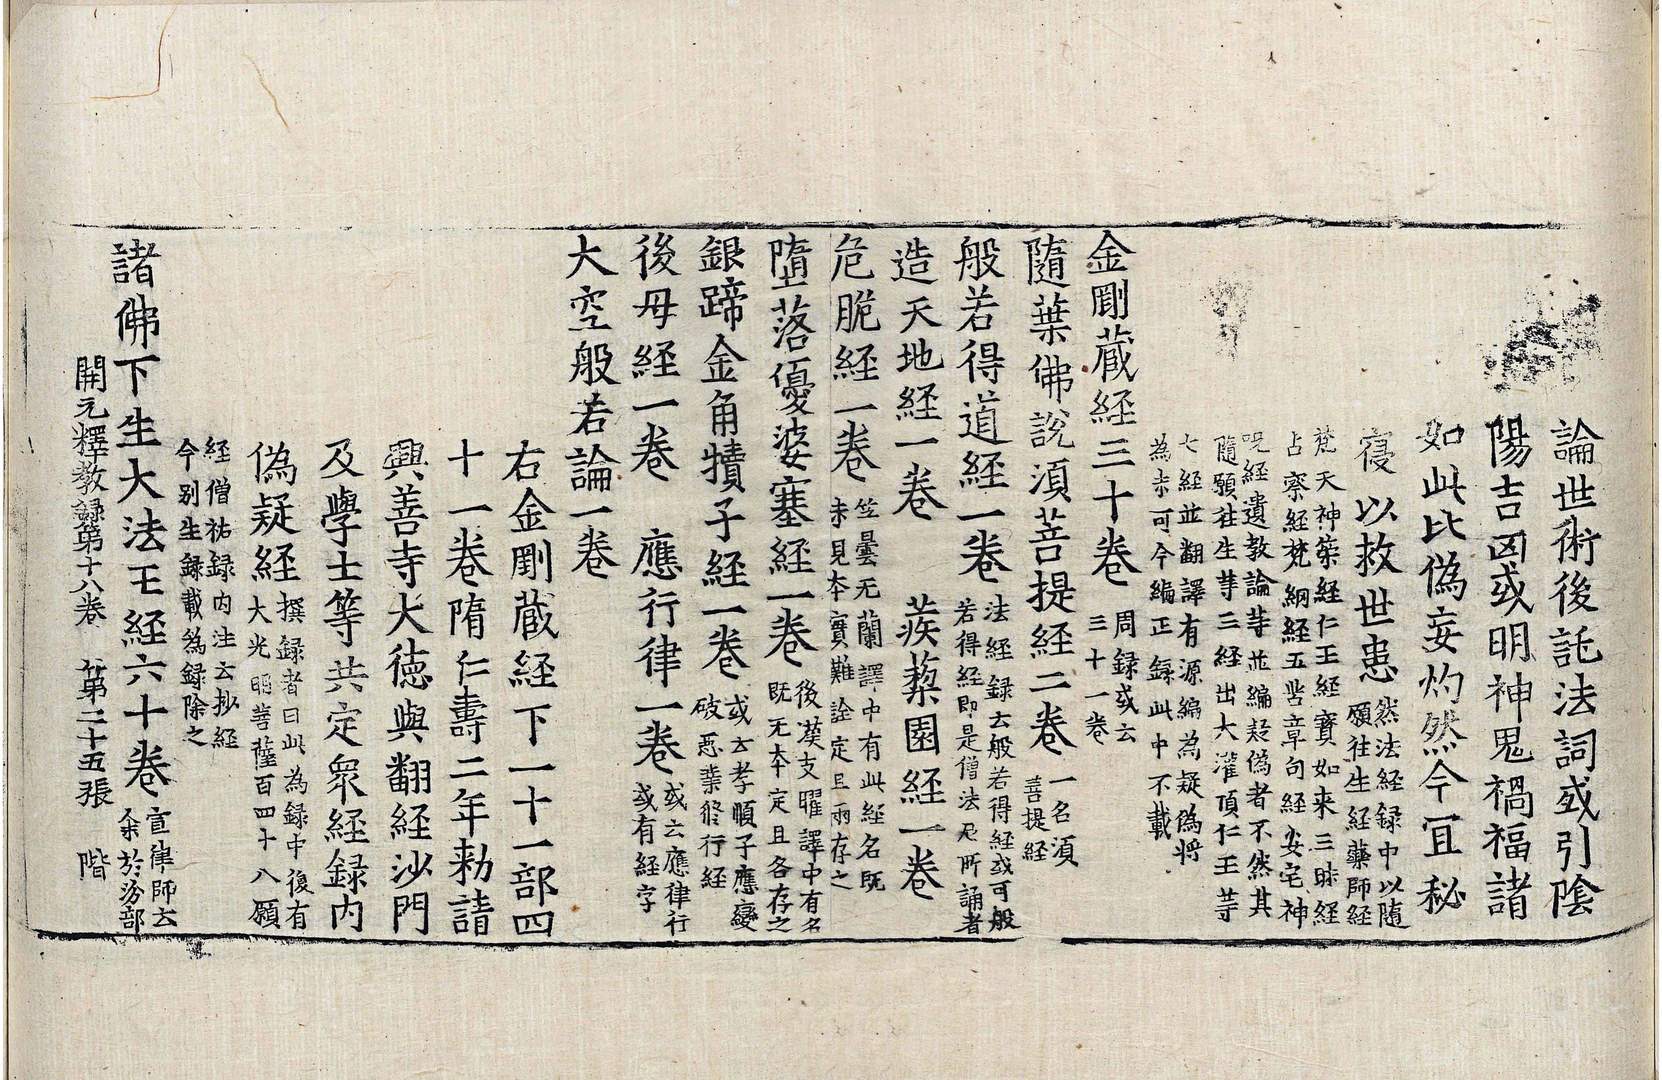 論世術後託法詞或引陰
陽吉凶或明神鬼禍福諸
如此比偽妄灼然今冝秘
寑以救世患然法経録中以隨
願往生経藥師経
梵天神策経仁王経寳如来三昧経
占察経梵網経五苦章句経安宅神
呪経遺教論䓁並編疑偽者不然其
隨願往生䓁三経出大灌頂仁王䓁
七経並翻譯有源編為疑偽将
為未可今編正録此中不載
金剛蔵経三十卷周録或云
三十一卷
隨葉佛說湏菩提経二卷一名湏
菩提経
般若得道経一卷法経録云般若得経或可般
若得経即是僧法尼所誦者
造天地経一卷 蒺蔾園経一卷
危脆経一卷竺曇无蘭譯中有此経名既
未見本實難詮定且兩存之
墮落優婆塞経一卷後漢支曜譯中有名
既无本定且各存之
銀蹄金角犢子経一卷或云孝順子應變
破惡業修行経
後母経一卷 應行律一卷或云應律行
或有経字
大空般若論一卷
右金剛蔵経下一十一部四
十一卷隋仁壽二年勑請
興善寺大德與翻経沙門
及學士等共定衆経録内
偽疑経撰録者曰此為録中復有
大光明菩薩百四十八願
経僧祐録内注云抄経
今别生録載為録除之
諸佛下生大法王経六十卷宣律師云
余於汾部
開元釋教録第十八卷 第二十五張 階